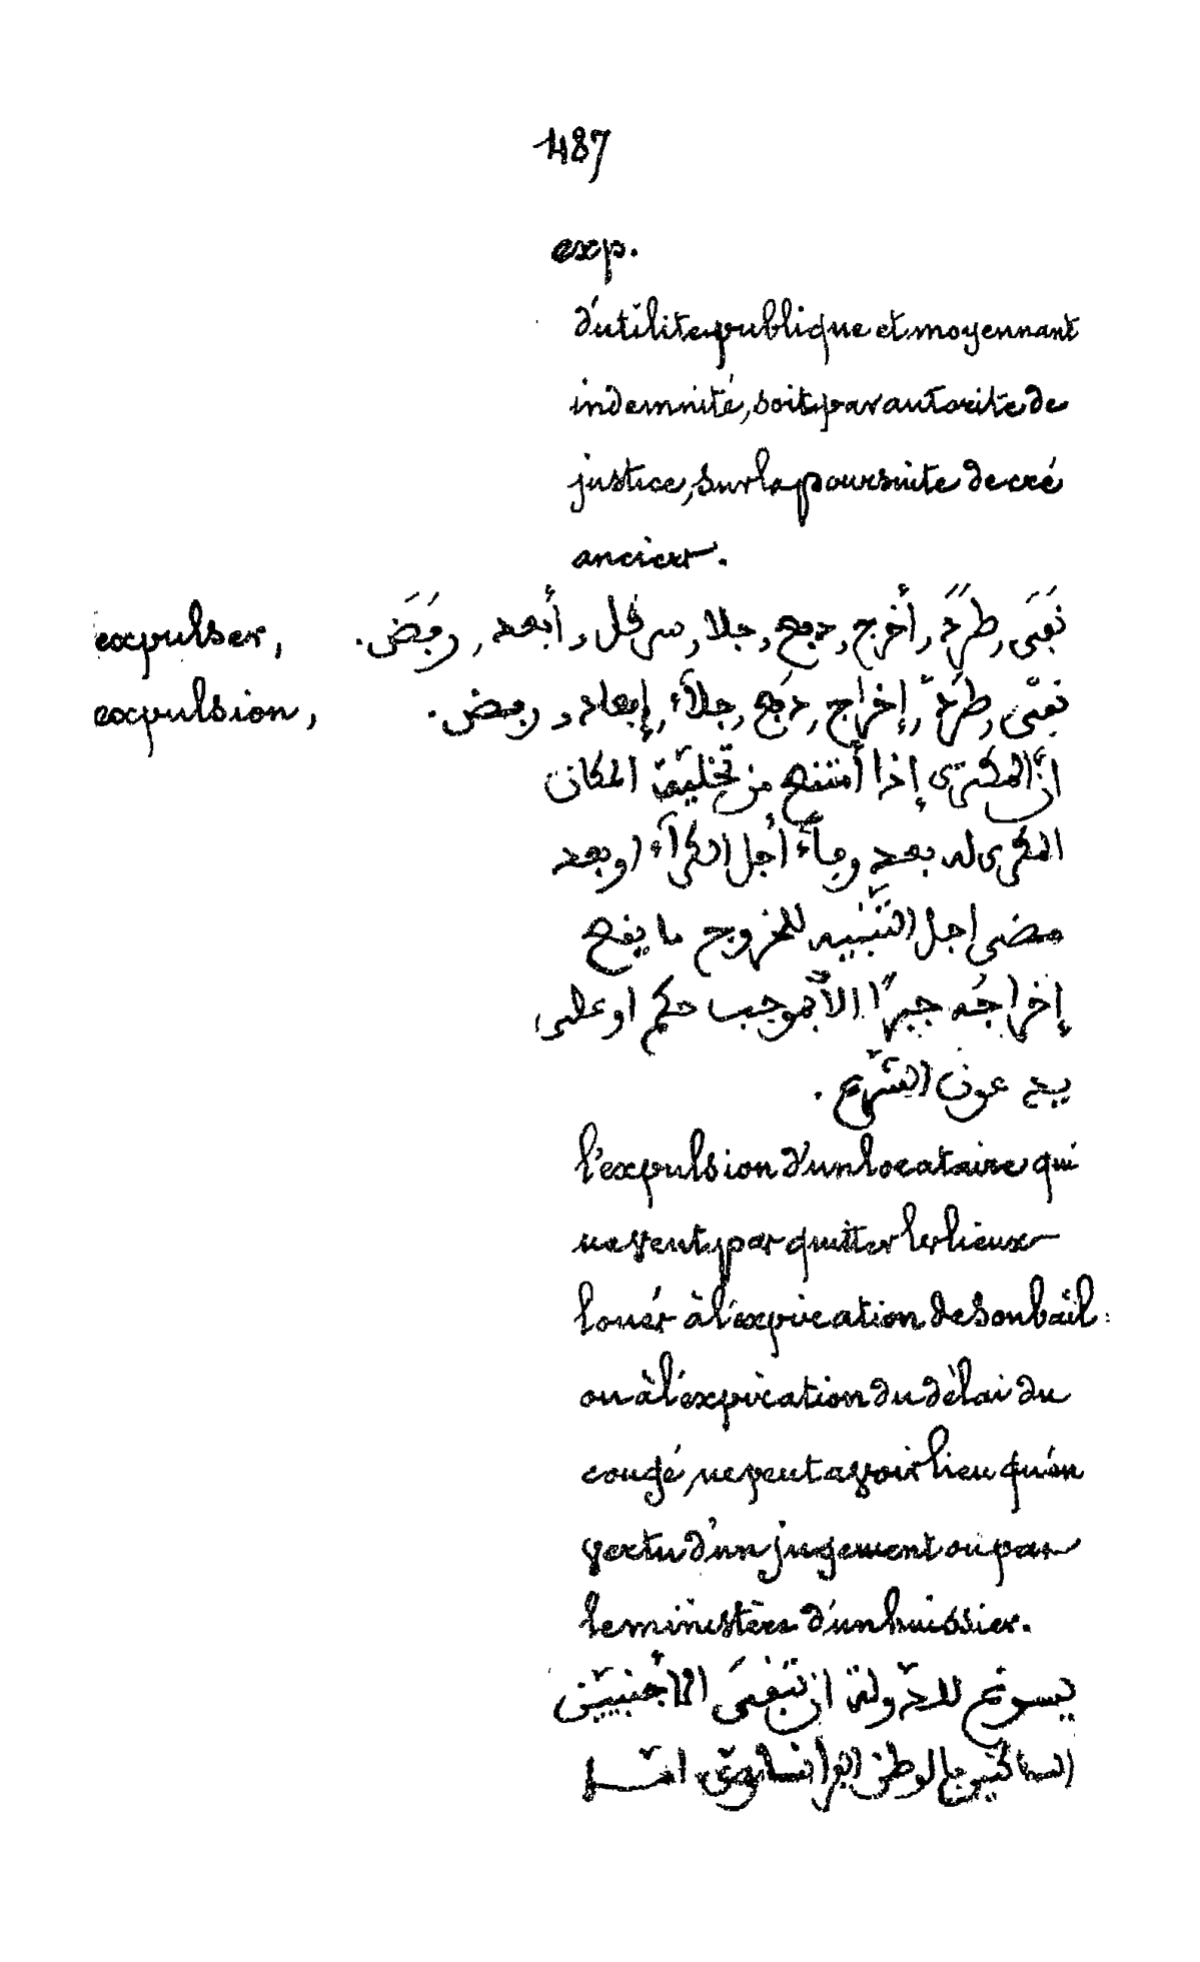 1487
exp.
d'utilité publique et moyennant
indemnité, soit par autorité de
justice, sur la poursuite de cré
ancier.
expulser, نَفَى, طَرَدَ, أخرج, دفع, جلا, سرڨل, أبعد, رفَضَ.
expulsion, نفىّ, طَرْدٌ, إخراج, دَفع, جلآء, إبعاد, رفض.
انّ المكترى إذا أمتنع من تخليّة المكان
المكرى له بعد وفآء أجل الكرآء او بعد
مضى اجل التّنبيه للخروج ما يقع
إخراجُه جبرًا الاّ بموجب حكم او على
يد عون الشّرع.
l'expulsion d'un locataire qui
ne veut par quitter les lieux
louér à l'expiration de son bail
ou à l'expiration du dèlai du
congé, ne peut avoir lieu qu'en
vertu d'un jugement ou par
le ministère d'un huissier.
يسوغ للدّولة ان تَنفىَ الأجنبييّن
الساكنين بالوطن الفرانساويّ امّا